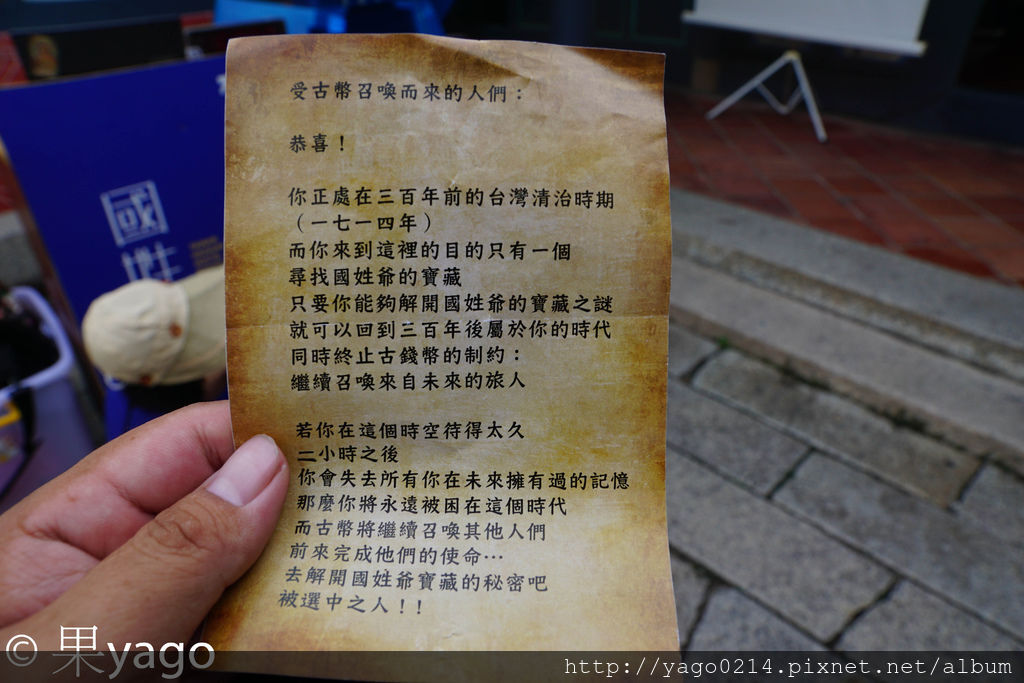 受古幣召喚而來的人們：
恭喜！
你正處在三百年前的台灣清治時期
（一七一四年）
而你來到這裡的目的只有一個
尋找國姓爺的寶藏
只要你能夠解開國姓爺的寶藏之謎
就可以回到三百年後屬於你的時代
同時終止古錢幣的制約：
繼續召喚來自未來的旅人
若你在這個時空待得太久
二小時之後
你會失去所有你在未來擁有過的記憶
那麼你將永遠被困在這個時代
而古幣將繼續召喚其他人們
前來完成他們的使命…
去解開國姓爺寶藏的秘密吧
被選中之人！！
國
姓
© 果yago
http://yago0214.pixnet.net/album